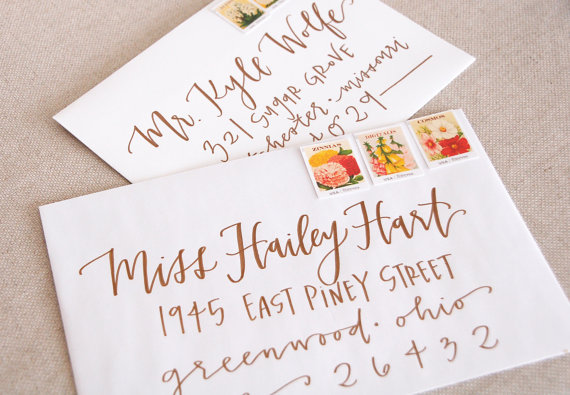 Mr. Kyle Wolfe
321 SUGAR GROVE
missouri
ZINNIAS
DIGITALIS
COSMOS
USA
USA
USA
Miss Hailey Hart
1945 EAST PINEY STREET
greenwood. ohio
26432